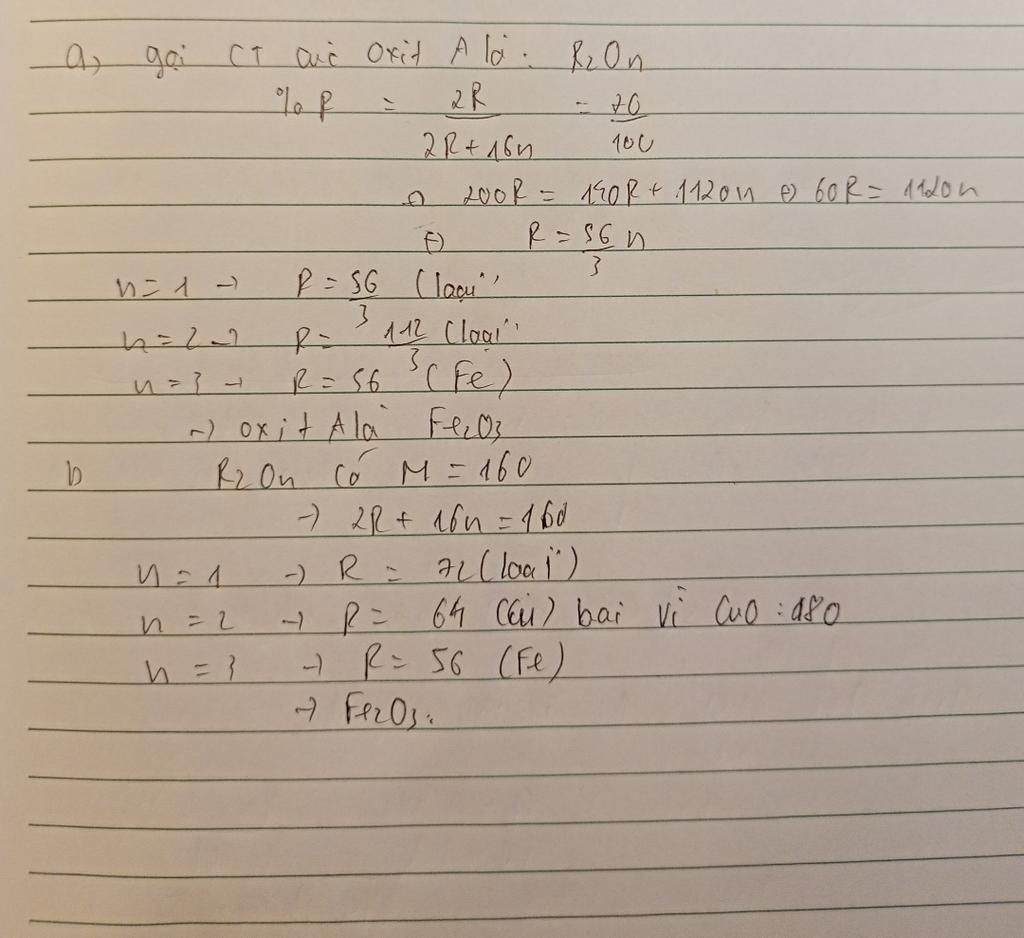 a, gọi CT của oxit A là : R2On
%R = 2R / 2R + 16n = 70 / 100
⇔ 200R = 140R + 1120n ⇔ 60R = 1120n
⇔ R = 56/3 n
n = 1 → R = 56/3 (loại)
n = 2 → R = 112/3 (loại)
n = 3 → R = 56 (Fe)
→ oxit A là Fe2O3
b R2On có M = 160
→ 2R + 16n = 160
n = 1 → R = 72 (loại)
n = 2 → R = 64 (Cu) loại vì CuO : 180
n = 3 → R = 56 (Fe)
→ Fe2O3.